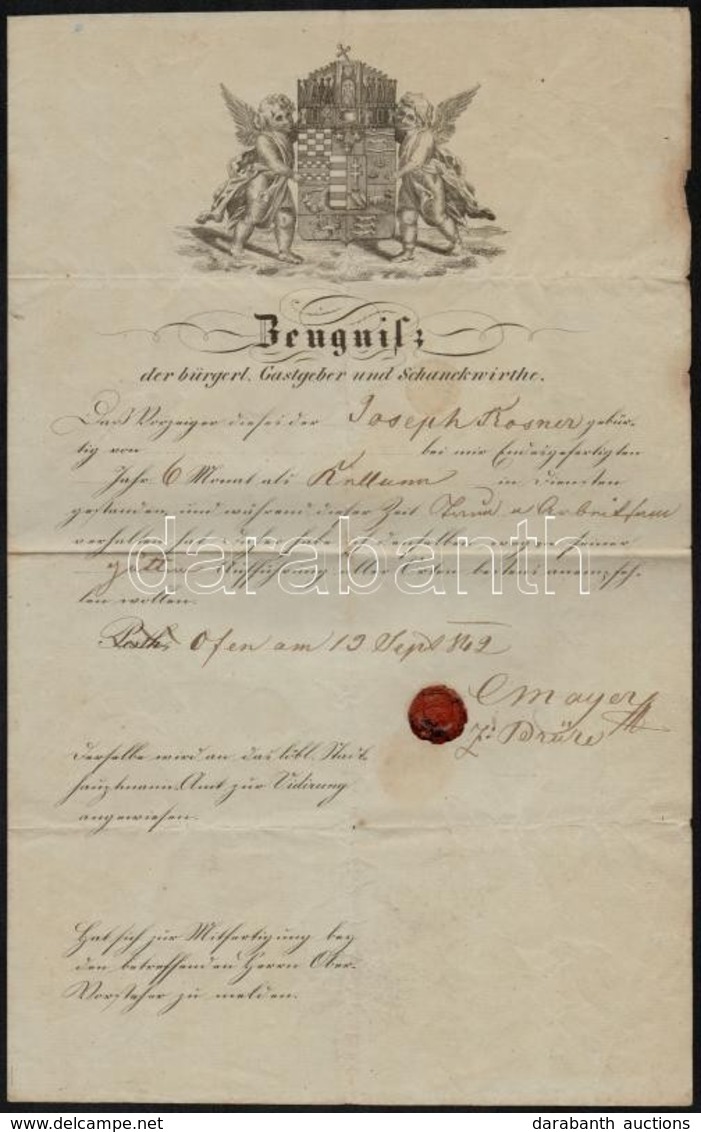 Zeugniß;
der bürgerl. Gastgeber und Schanckwirthe.
Daß Vorzeiger dieses der Joseph Rosner gebür-
tig von bei mir Endesgefertigten
Jahr 6 Monat als Kellner in Diensten
gestanden, und während dieser Zeit Treu u Arbeitsam
verhalten hat, daher habe derselben wegen seiner
guten Aufführung aller Orten bestens anempfeh-
len wollen.
Pesth, Ofen am 13 Sept
C Mayer
derselbe wird an das löbl. Stadt-
hauptmann. Amt zur Vidirung
angewiesen.
Hat sich zur Mitfertigung bey
den betreffenden Herrn Ober-
Vorsteher zu melden.
darabanth
darabanth auctions